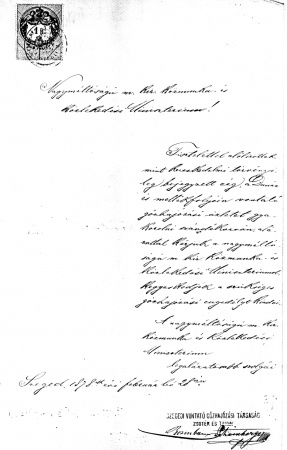 Nagyméltóságú m. kir. Közmunka és
közlekedési Ministerium!
Tisztelettel alólirottak
mint kereskedelmi törvényi-
leg bejegyzett czég, a Duna
és mellékfolyóin vontató
gőzhajózási üzletet gya-
korolni szándékozván, alá-
zattal kérjük a nagymélt-
óságú m. kir. Közmunka és
Közlekedési Ministeriumot
kegyeskedjék a szükséges
gőzhajózási engedélyt kiadni.
A nagyméltóságú m. kir.
Közmunka és Közlekedési
Ministerium
legalázatosabb szolgái
Szeged, 1878 évi februar hó 28án
SZEGEDI VONTATÓ GŐZHAJÓZÁSI TÁRSASÁG
ZSÓTÉR ÉS TÁRSAI